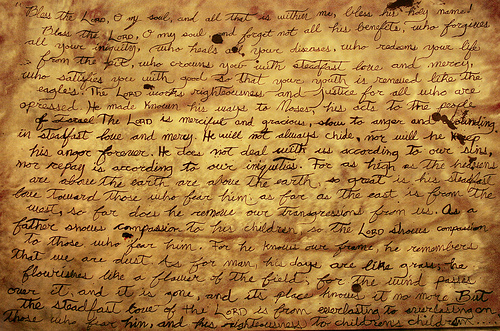 "Bless the LORD, O my soul, and all that is within me, bless his holy name!
Bless the LORD, O my soul and forget not all his benefits, who forgives
all your iniquity, who heals all your diseases, who redeems your life
from the pit, who crowns you with steadfast love and mercy,
who satisfies you with good so that your youth is renewed like the
eagles. The LORD works righteousness and justice for all who are
opressed. He made known his ways to Moses, his acts to the people
of Israel The LORD is merciful and gracious, slow to anger and abounding
in steadfast love and mercy. He will not always chide, nor will he keep
his anger forever. He does not deal with us according to our sins,
nor repay is according to our iniquities. For as high as the heavens
are above the earth are above the earth, so great is his steadfast
love toward those who fear him, as far as the east is from the
west, so far does he remove our transgressions from us. As a
father shows compassion to his children, so the LORD shows compassion
to those who fear him. For he knows our frame, he remembers
that we are dust As for man, his days are like grass, he
flourishes like a flower of the field, for the wind passes
over it, and it is gone, and its place knows it no more But
the steadfast love of the LORD is from everlasting to everlasting on
those who fear him, and his righteousness to children's children...